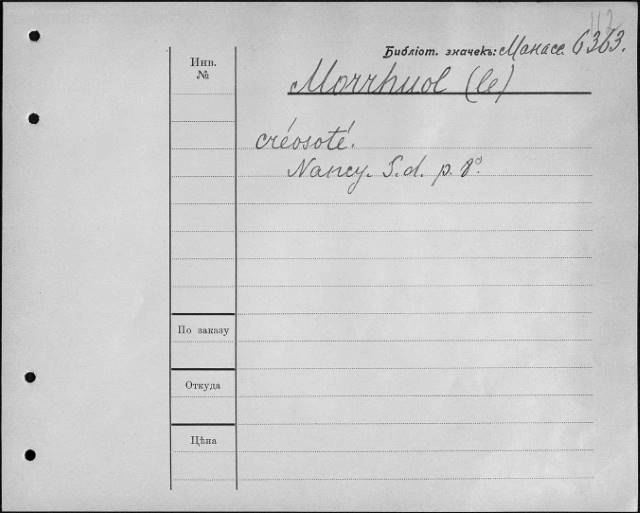 112
Библіот. значекъ: Манасс. 6363.
Инв.
№
Morrhuol (le)
créosoté.
Nancy. S.d. p. 8°
По заказу
Откуда
Цѣна